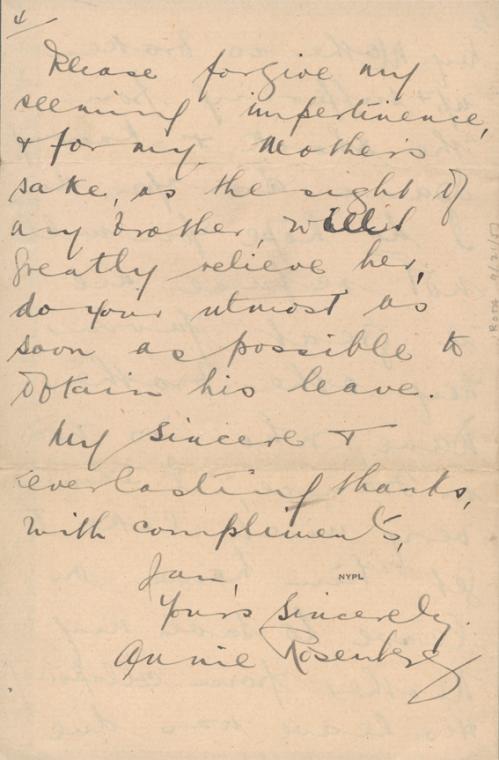 4
Please forgive my
seeming impertinence,
& for my Mother's
sake, as the sight of
my brother, will
greatly relieve her,
do your utmost as
soon as possible to
obtain his leave.
My sincere &
everlasting thanks,
with compliments,
I am,
NYPL
Yours Sincerely.
Annie Rosenberg